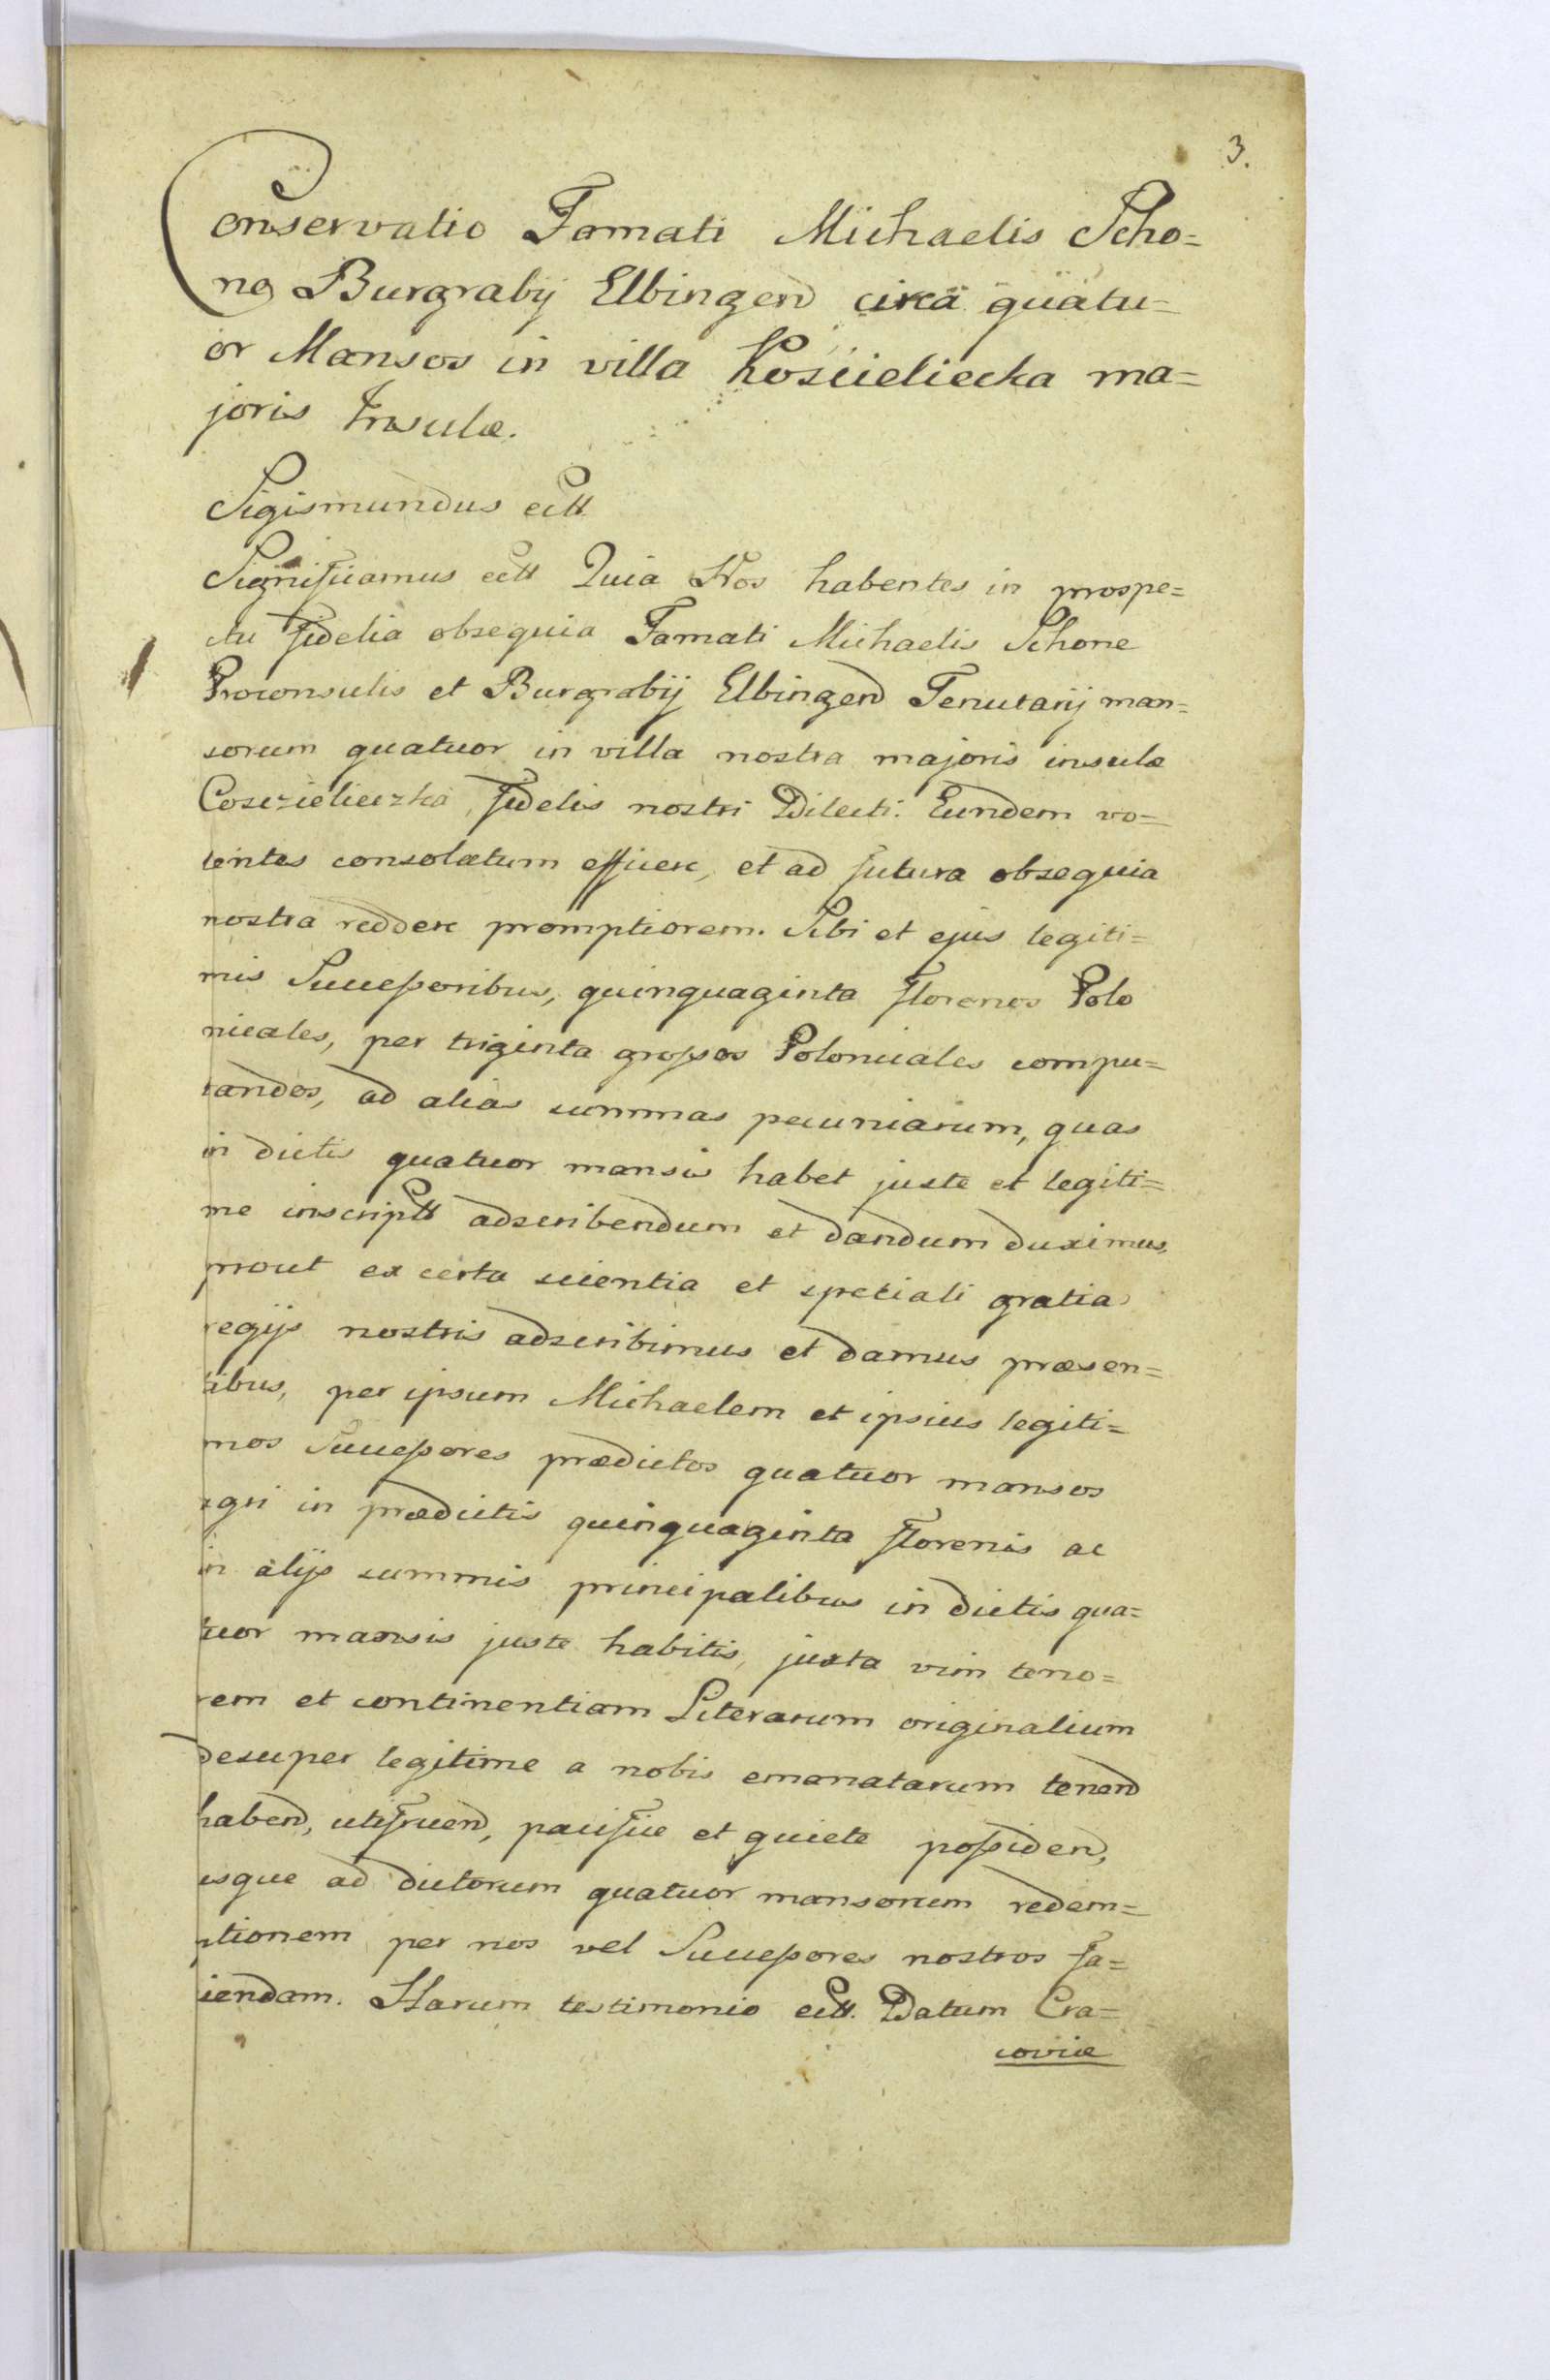 3.
Conservatio Famati Michaelis Scho=
ne Burgrabij Elbingen circa quatu=
or Mansos in villa Koscieliecka ma=
joris Insulæ.
Sigismundus ectt
Significamus ectt Quia Nos habentes in prospe=
ctu fidelia obsequia Famati Michaelis Schone
Proconsulis et Burgrabij Elbingen Tenutarij man=
sorum quatuor in villa nostra majoris insulæ
Coszczieliczka, fidelis nostri Dilecti. Eundem vo=
lentes consolatum efficere, et ad futura obsequia
nostra reddere promptiorem. Sibi et ejus legiti=
mis Successoribus, quinquaginta florenos Polo
nicales, per triginta grossos Polonicales compu=
tandos, ad alias summas pecuniarum, quas
in dictis quatuor mansis habet juste et legiti=
me inscriptt adscribendum et dandum duximus,
prout ex certa scientia et spetiali gratia
regijs nostris adscribimus et damus præsen=
tibus, per ipsum Michaelem et ipsius legiti=
mos Successores prædictos quatuor mansos
agri in prædictis quinquaginta florenis ac
in alijs summis principalibus in dictis qua=
tuor mansis juste habitis, juxta vim teno=
rem et continentiam Literarum originalium
desuper legitime a nobis emanatarum tenend
habend, utifruend, pacifice et quiete possidend,
usque ad dictorum quatuor mansorum redem=
ptionem per nos vel Successores nostros fa=
ciendam. Harum testimonio ectt. Datum Cra=
coviæ